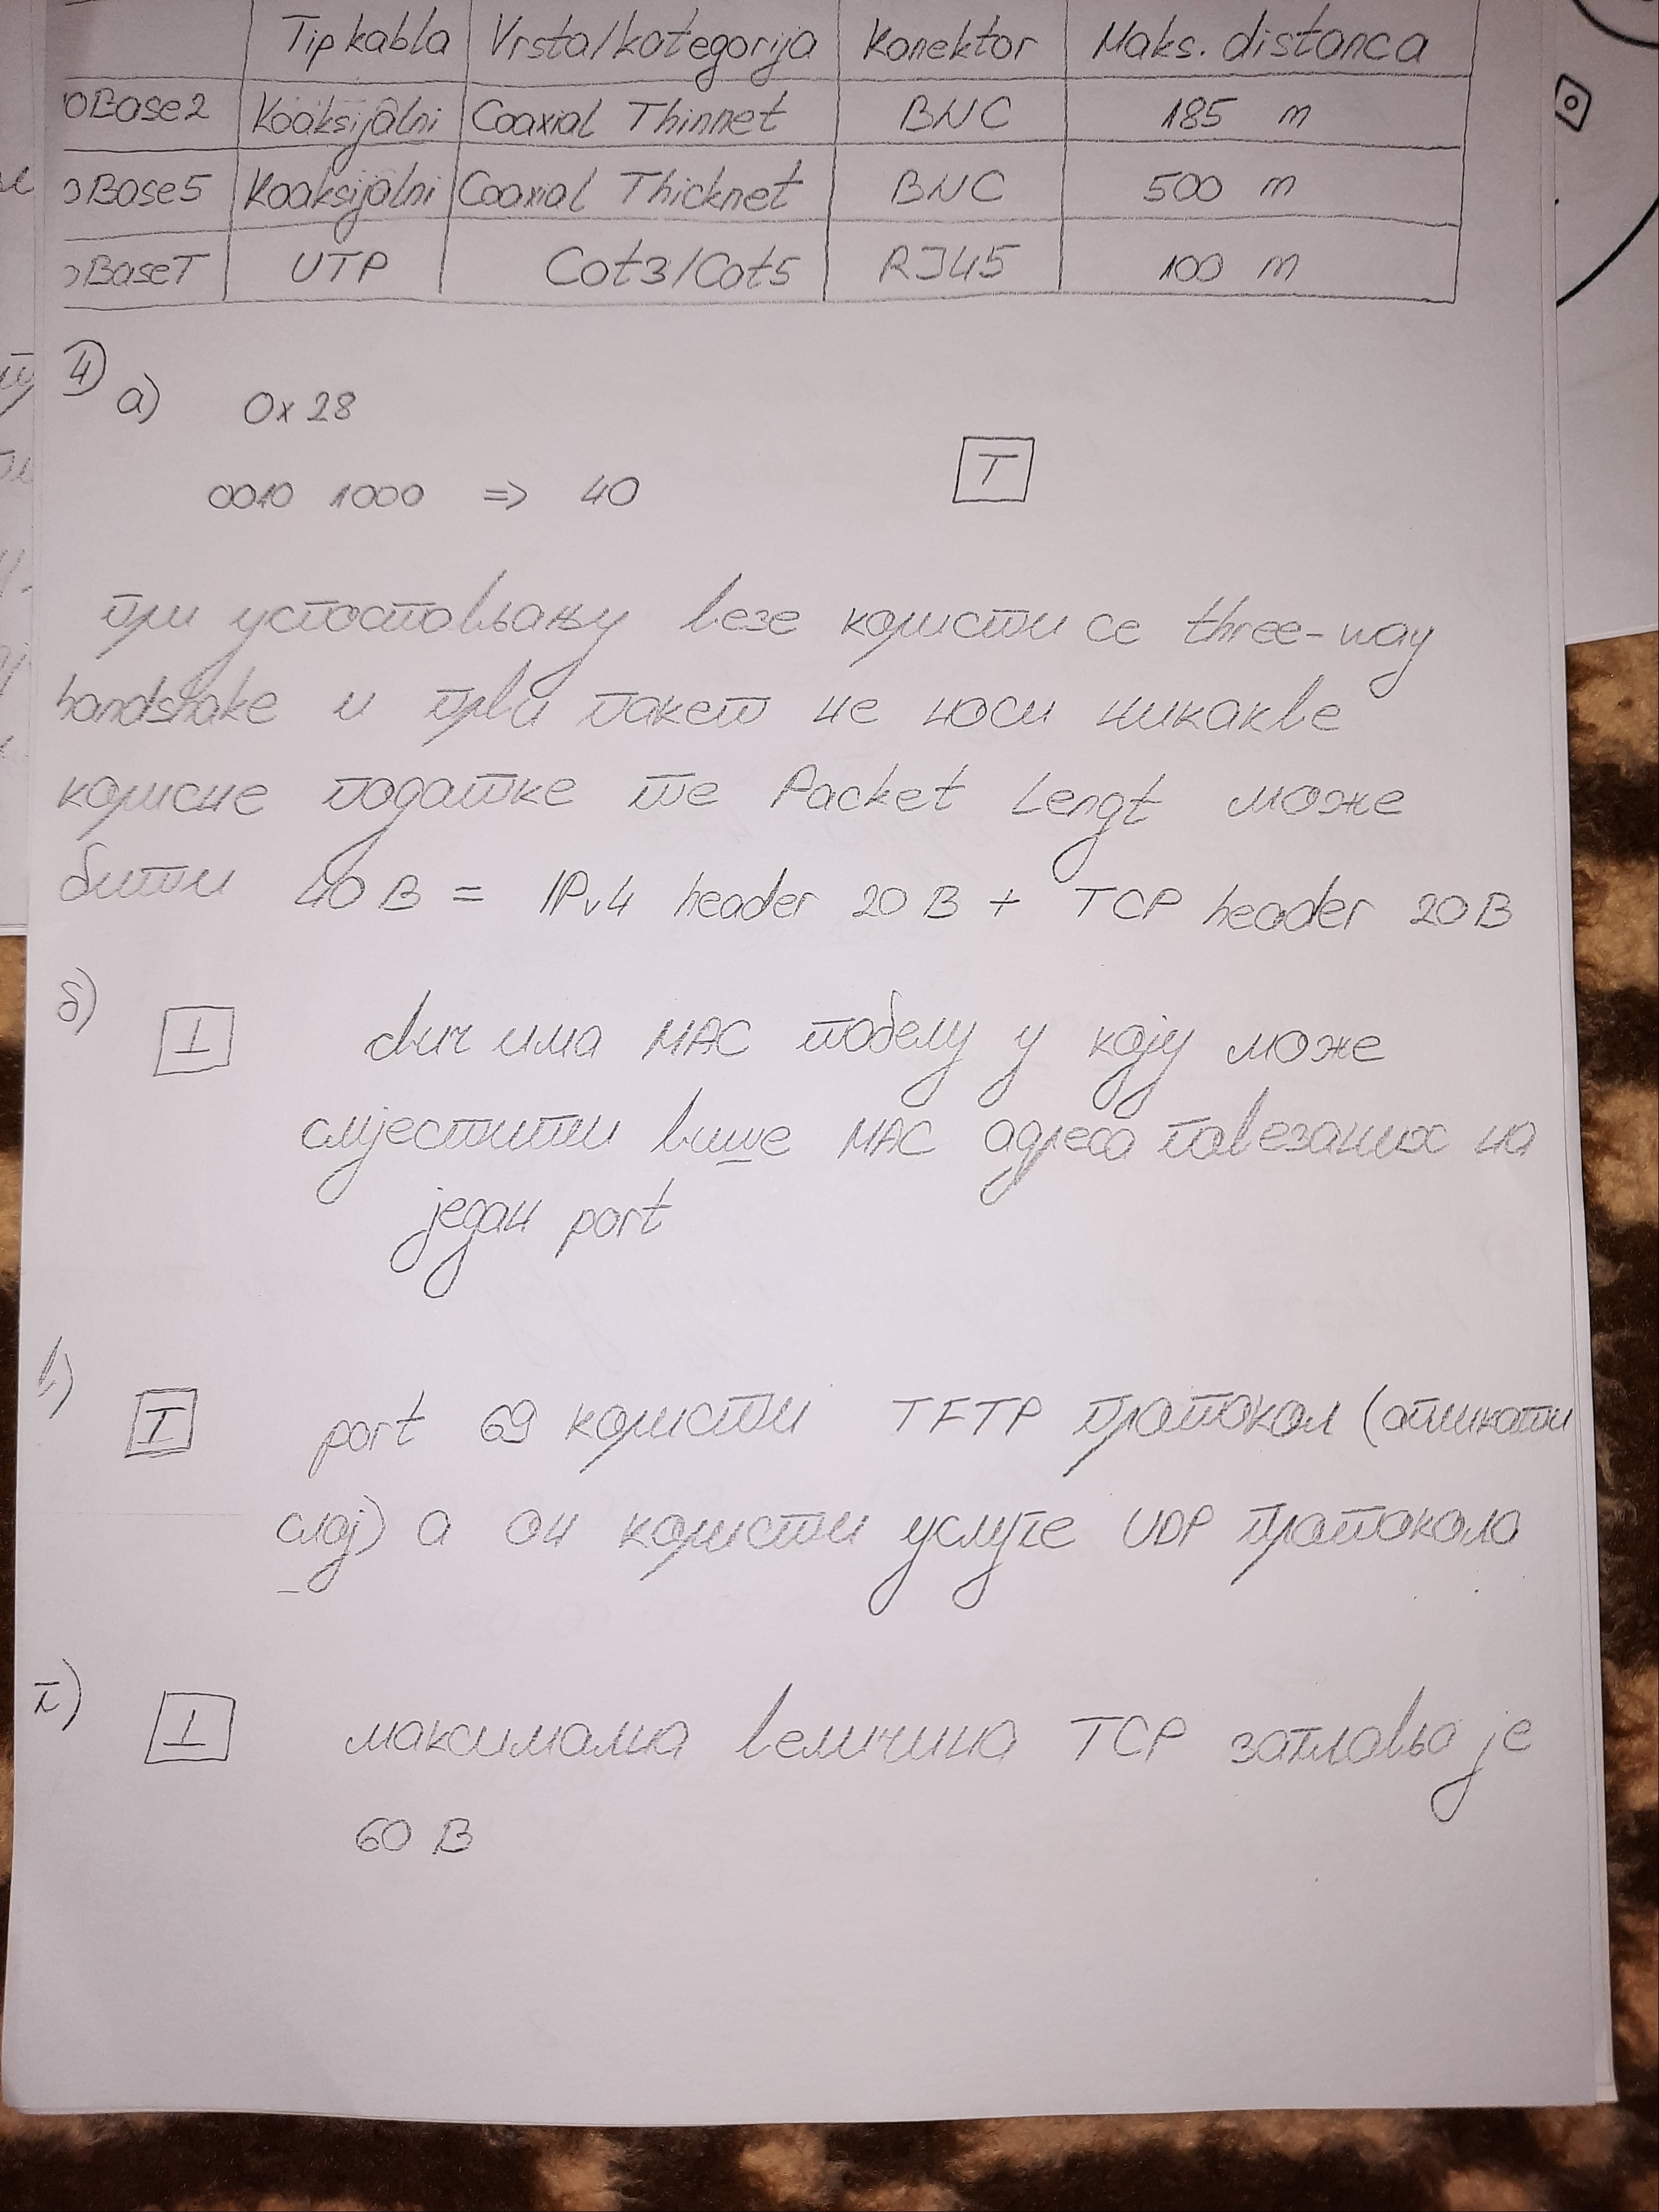 Tip kabla Vrsta/kategorija Konektor Maks. distanca
0Base2 Koaksijalni Coaxial Thinnet BNC 185 m
Base5 Koaksijalni Coaxial Thicknet BNC 500 m
BaseT UTP Cat3/Cat5 RJ45 100 m
4) a) 0x28
0010 1000 => 40 T
при успостављању везе користи се three-way
handshake и први пакет не носи никакве
корисне податке те Packet Lengt може
бити 40 B = IPv4 header 20 B + TCP header 20 B
б) ⊥ свич има MAC табелу у коју може
смјестити више MAC адреса повезаних на
један port
в) T port 69 користи TFTP протокол (апликати
слој) а он користи услуге UDP протокола
г) ⊥ максимална величина TCP заглавља је
60 B